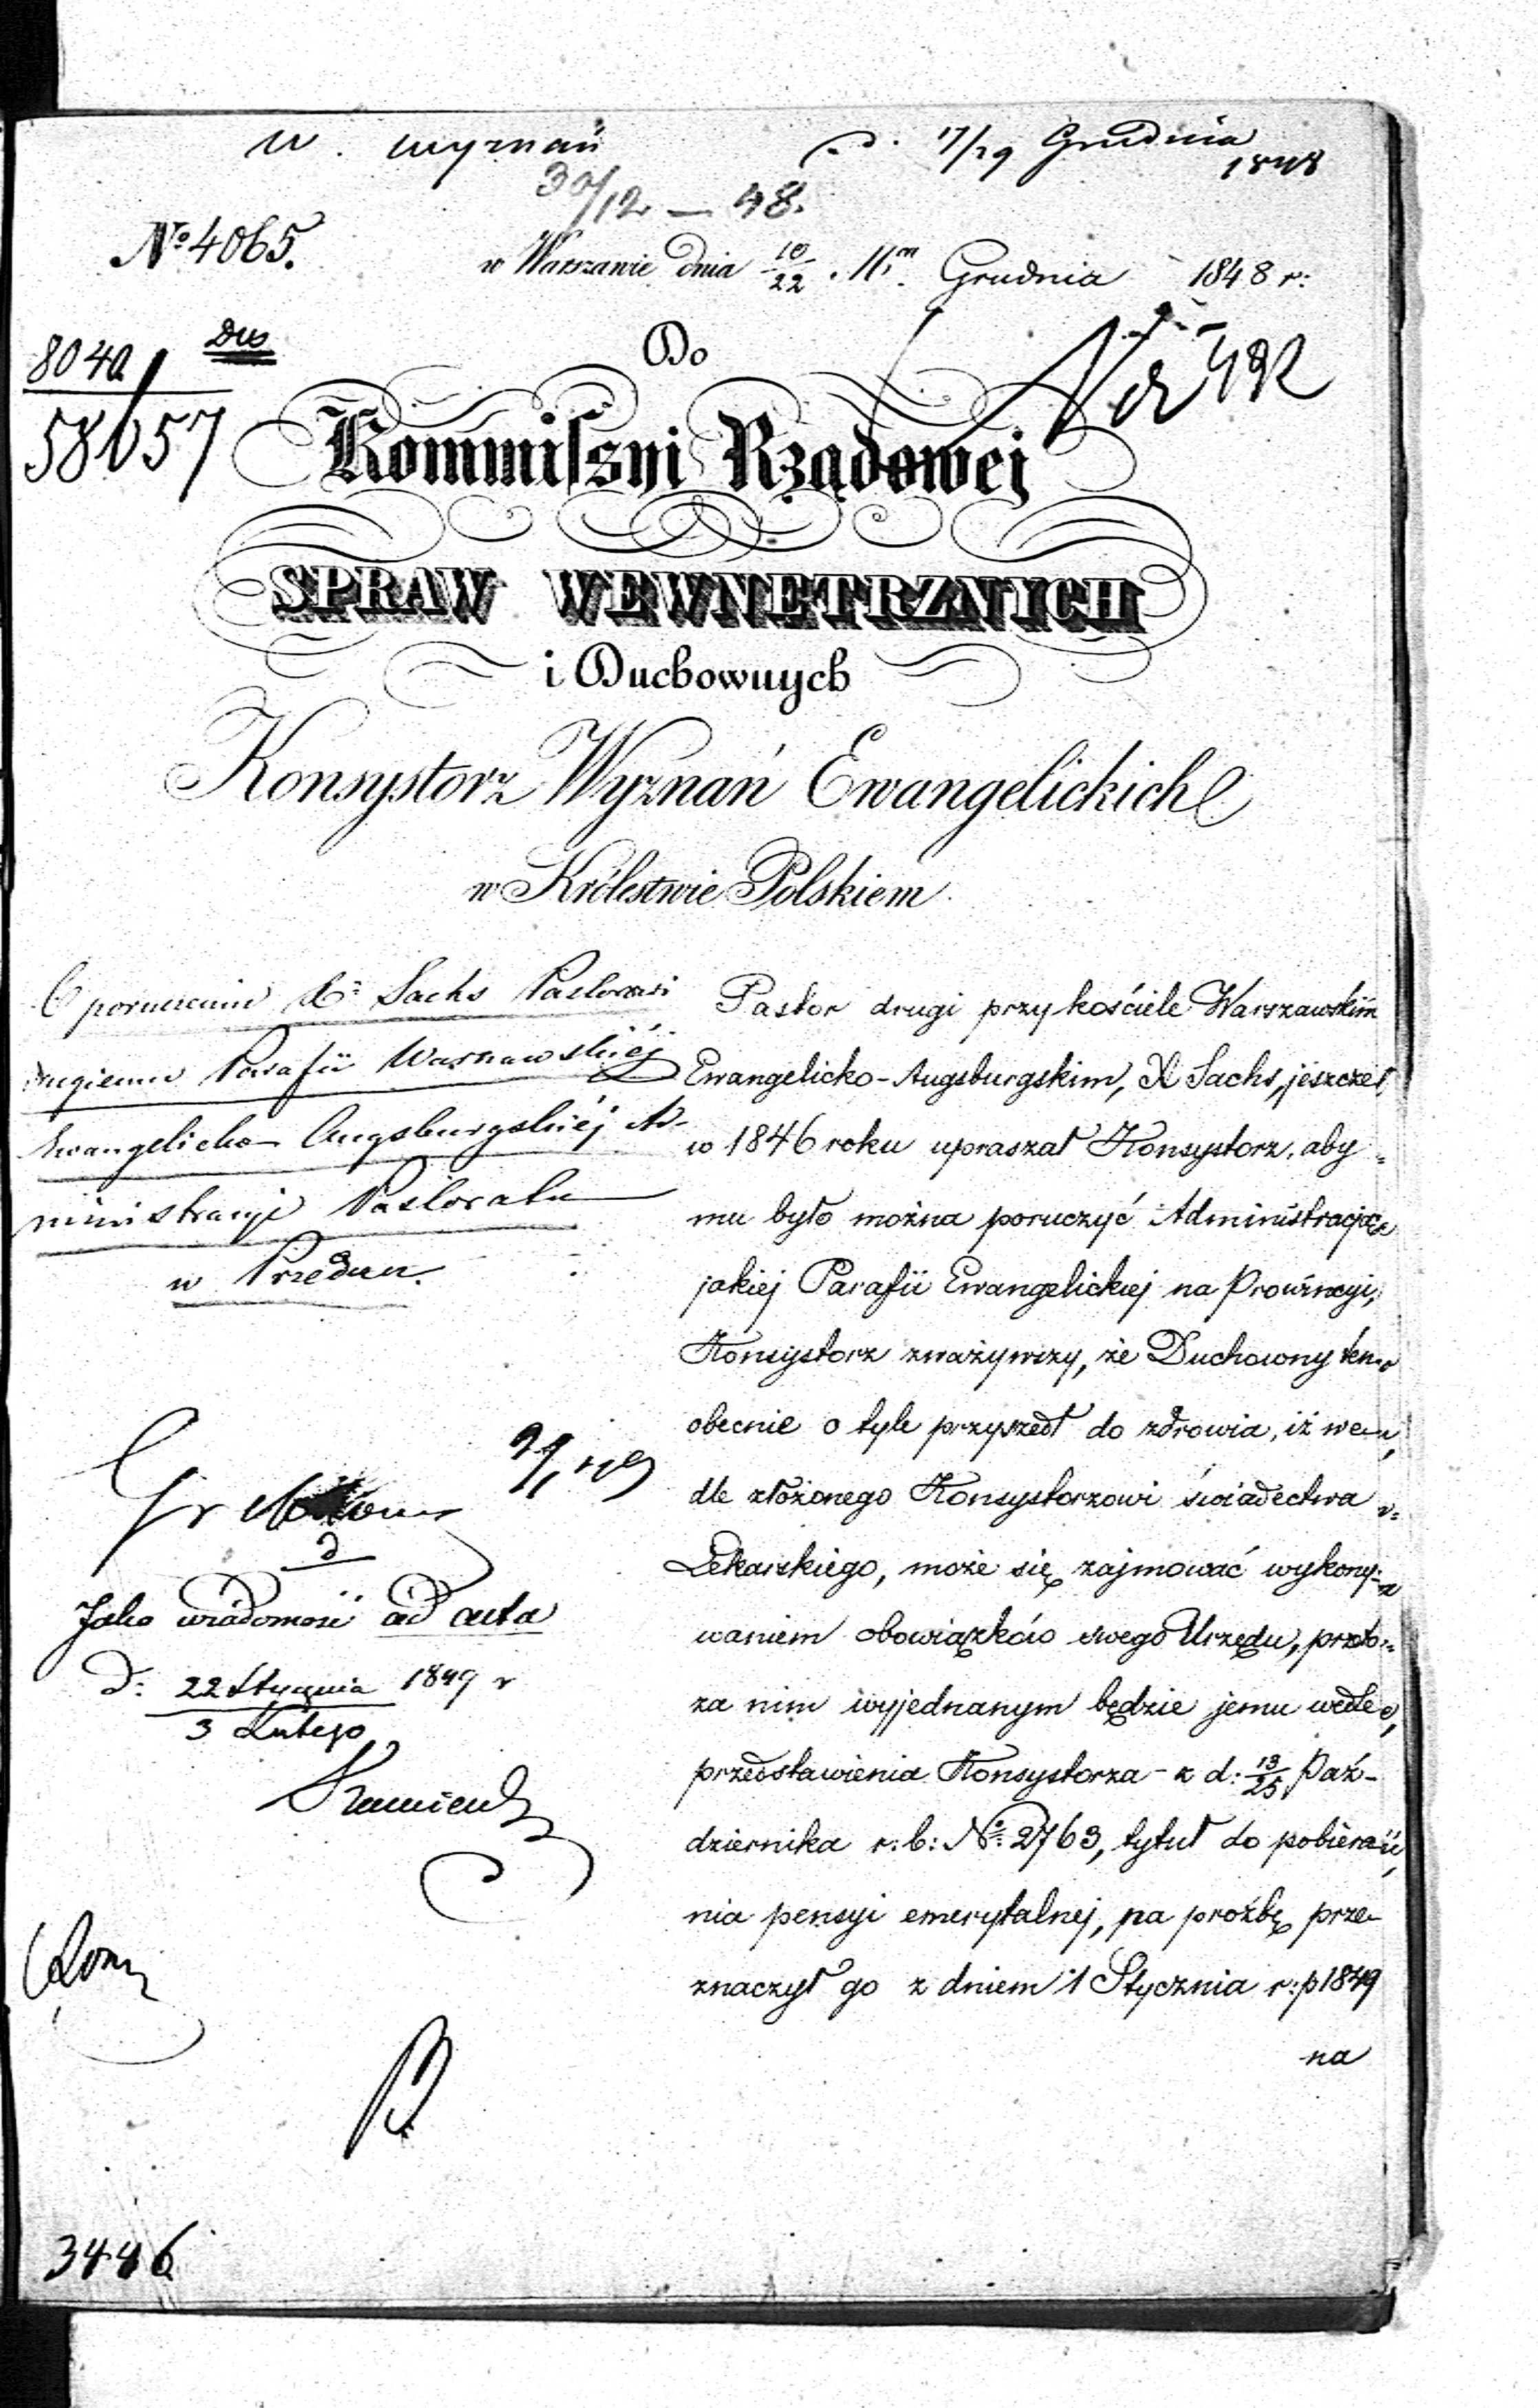 W. Wyznań d. 17/29 Grudnia
1848
30/12 — 48.
No 4065.
w Warszawie dnia 10/22 Mca Grudnia 1848 r:
58057
Do
Kommiſsyi Rządowej
SPRAW WEWNETRZNYCH
i Duchownych
Konsystorz Wyznań Ewangelickich
w Królestwie Polskiem
O poruczeniu X. Sachs Pastorowi
drugiemu Parafii Warszawskiéj
Ewangelicko Augsburgskiéj Ad-
ministracyi Pastoratu
w Przedczu.
Pastor drugi przy kościele Warszawskim
Ewangelicko-Augsburgskim, X Sachs, jeszcze
w 1846 roku upraszał Konsystorz, aby
mu było można poruczyć Administracją
jakiej Parafii Ewangelickiej na Prowincyi,
Konsystorz zważywszy, że Duchowny ten
obecnie o tyle przyszedł do zdrowia, iż we-
dle złożonego Konsystorzowi świadectwa
Lekarskiego, może się zajmować wykony-
waniem obowiązków swego Urzędu, przeto
za nim wyjednanym będzie jemu wedle
przedstawienia Konsystorza z d: 13/25 Paź-
dziernika r: b: No 2763, tytuł do pobiera-
nia pensyi emerytalnej, na prożbę prze-
znaczył go z dniem 1 Stycznia r: p 1849
na
Jako wiadomość ad acta
d: 22 Stycznia 1849 r
3 Lutego
3446